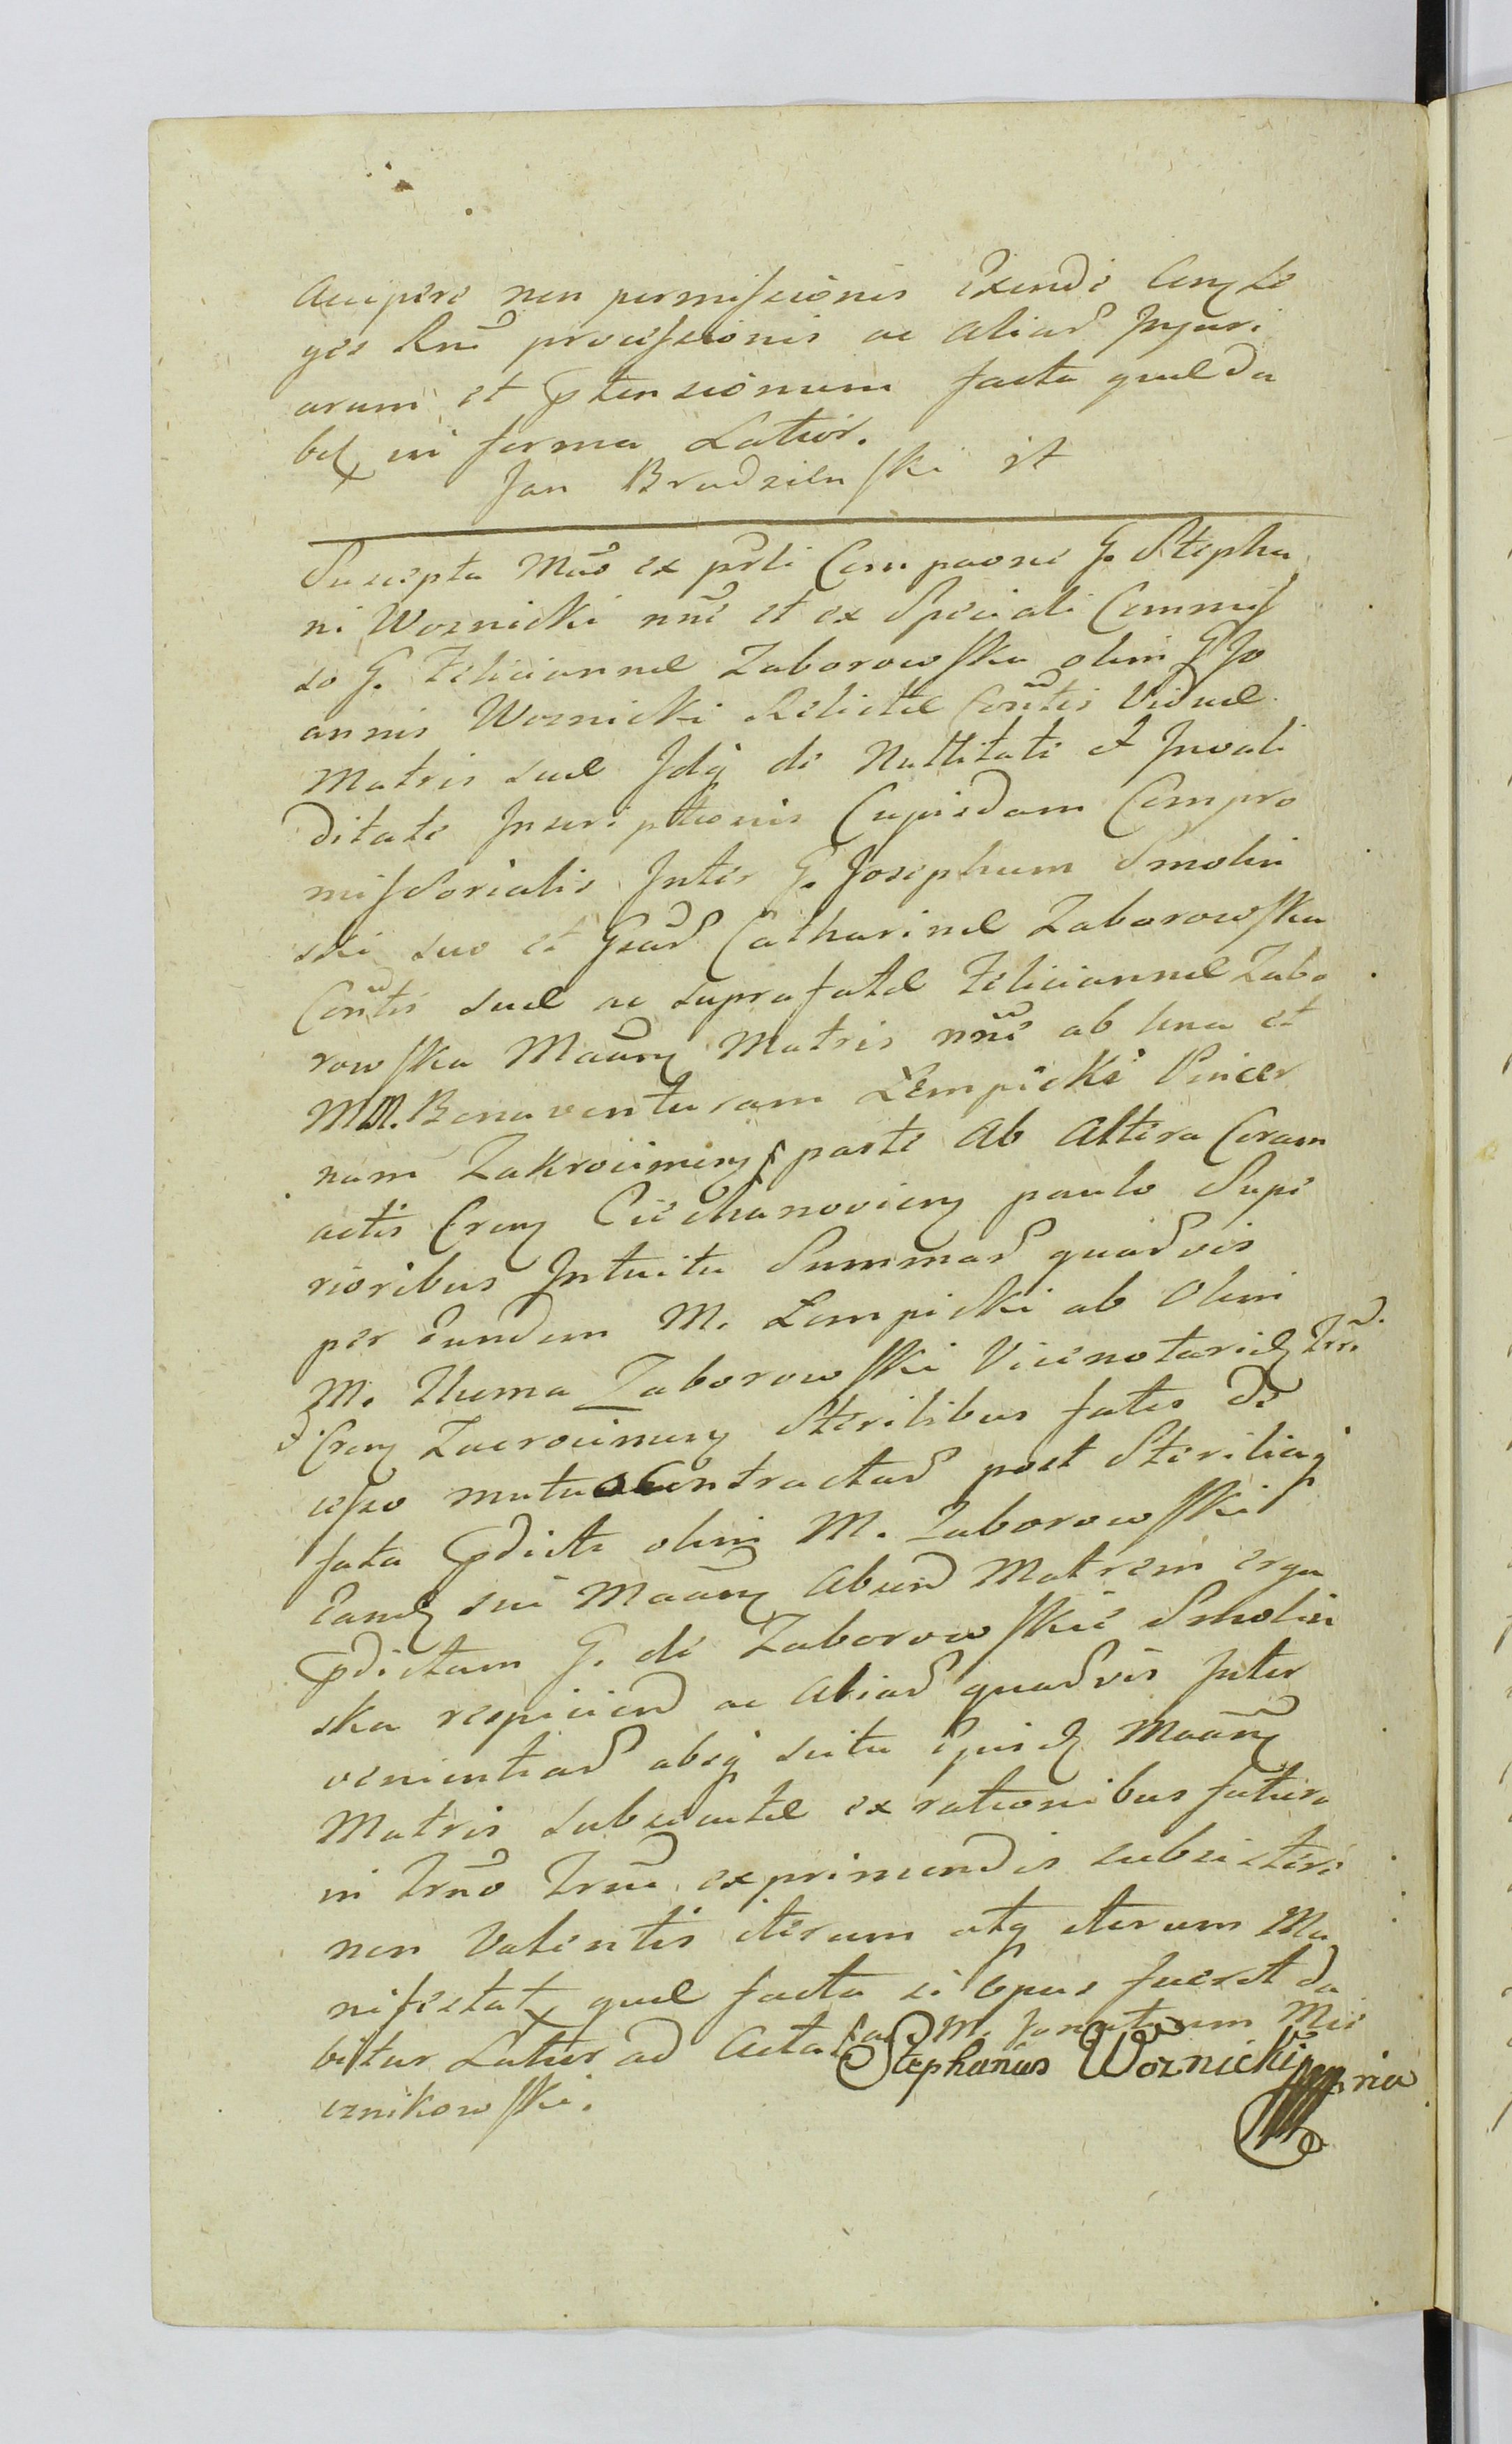 Accipere non permissionis Exinde
ges Rni processionis ac aliar Injuri
arum et ptensionum facta quae da
bit in forma Latior.
Jan Brudzieński
Suscepta Mao ex psli Compaone G. Stepha
ni Woznicki nne et ex Speciali Commis
so G. Feliciannae Zaborowska olim G Jo
annis Woznicki Relictae Contis Viduae
Matris suae Idq de Nullitate et Invali
ditate Inscriptionis Cujusdam Compro
missorialis Inter G. Josephum Smolin
ski suo et Gsar Catharinae Zaborowska
Contis suae ac suprafatae Feliciannae Zabo
rowska Maany Matris nne ab una et
M. Bonaventuram Lempicki Pincer
nam Zakrocimien parte Ab Altera Coram
actis Cren Ciechanovien paulo Supe
rioribus Intuitu Summar quarvis
per Eundem M. Lempicki ab Olim
M. Thoma Zaborowski Vicenotario Trri
Cren Zacrocimien Sterilibus fatis De
cesso mutuo Contractar post Steriliaq
fata pdicti olim M. Zaborowski
Eamq sui Maany Absend Matrem erga
pdictam G. de Zaborowskie Smolin
ska respiciend ac Aliar quarvis Inter
venientiar absq scitu Ejusd Maany
Matris subsecutae ex rationibus futuro
in Trno Trni exprimendis subsistere
non Valentis iterum atq iterum Ma
nifestat quae facta si opus fuerit da
bitur Latior ad Acta M. Jonatum Mie
cznikowski.
Stephanus Woznicki mpria